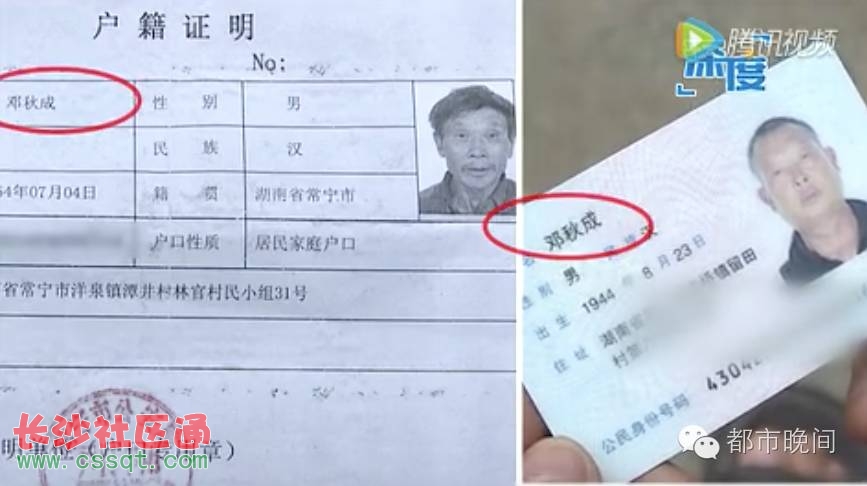 户籍证明
No:
邓秋成 性别 男
民族 汉
54年07月04日 籍贯 湖南省常宁市
户口性质 居民家庭户口
省常宁市洋泉镇潭井村林官村民小组31号
长沙社区通
www.cssqt.com
章)
腾讯视频
深度
邓秋成
性别 男 民族 汉
出生 1944 年 8 月 23 日
住址 湖南省
留田
村
公民身份号码 4304
都市晚间